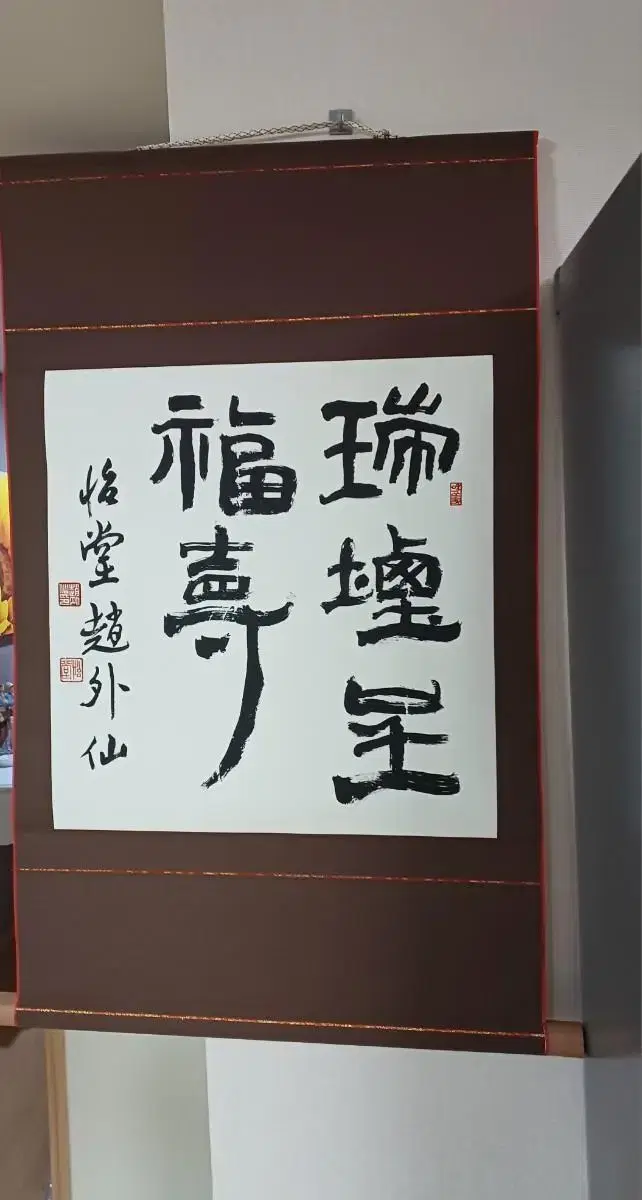 瑞呈
福壽
怡堂趙外仙
怡堂